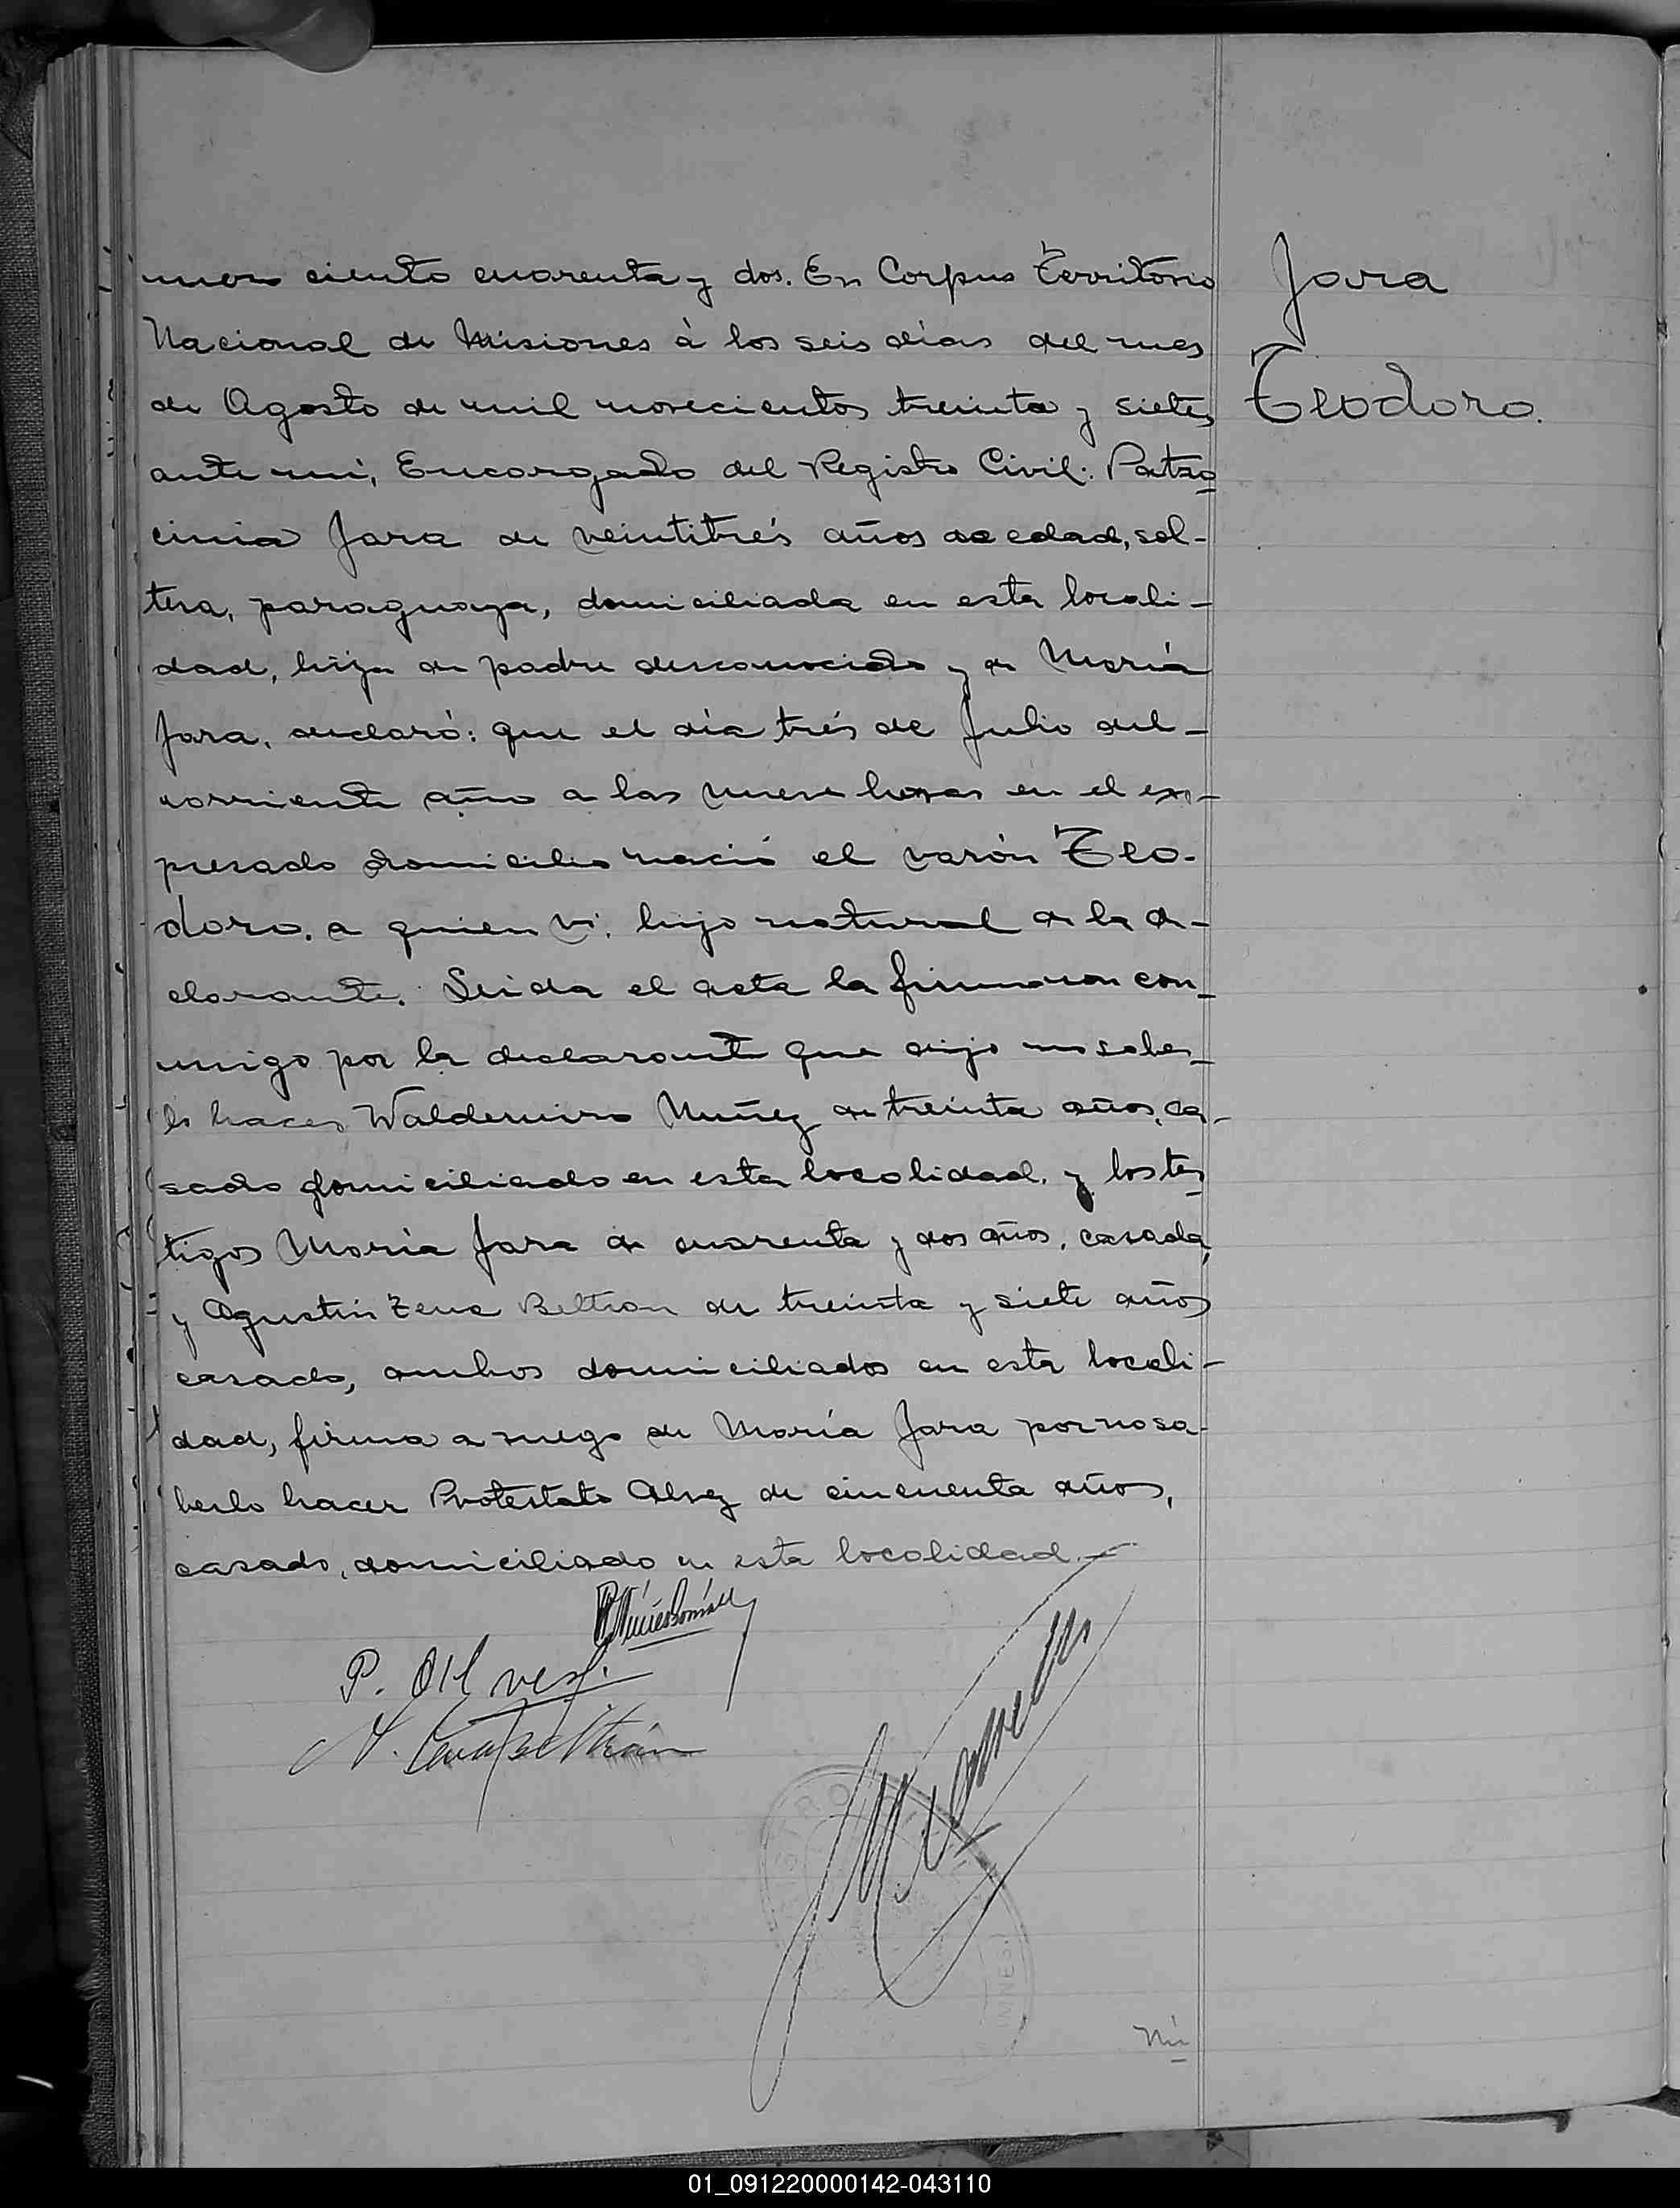 mero ciento cuarenta y dos. En Corpus Territorio
Nacional de Misiones à los seis días del mes
de Agosto de mil novecientos treinta y siete,
ante mí, Encargado del Registro Civil: Patro
cinia Jara de veintitrés años de edad, sol-
tera, paraguaya, domiciliada en esta locali-
dad, hija de padre desconocido y de María
Jara, declaró: que el día trés de Julio del-
corriente año a las nueve horas en el ex-
presado domicilio nació el varón Teo-
doro. a quien vi, hijo natural de la de-
clarante. Leida el acta la firmaron con-
migo por la declarante que dijo no saber-
lo hacer Waldemiro Nuñez de treinta años, ca-
sado domiciliado en esta localidad, y los tes
tigos María Jara de cuarenta y dos años, casada,
y Agustín Zena Beltran de treinta y siete años
casado, ambos domiciliados en esta locali-
dad, firma a ruego de María Jara por no sa-
berlo hacer Protestato Alvez de cincuenta años,
casado, domiciliado en esta localidad.-
Jara
Teodoro.
P.
Beltrán
Nú
01_091220000142-043110